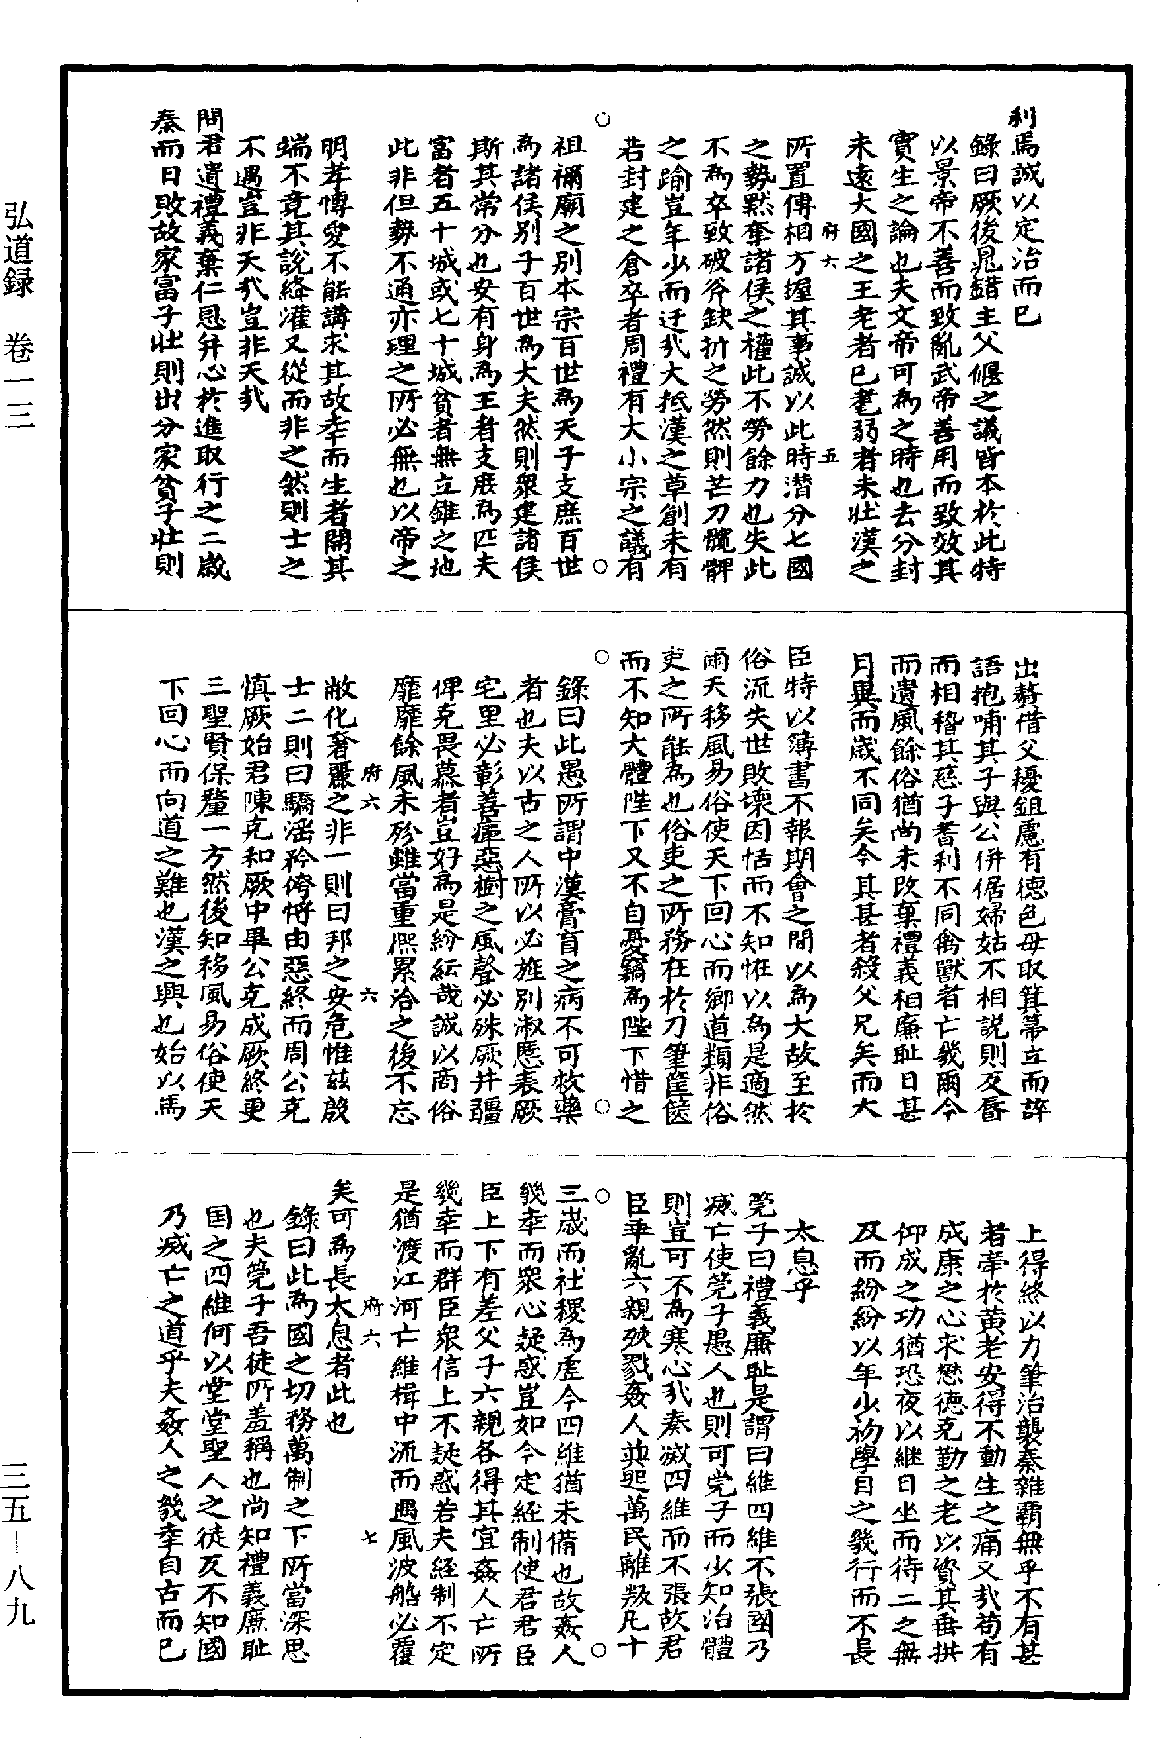 利焉誠以定治而已
錄曰厥後晁錯主父偃之議皆本於此特
以景帝不善而致亂武帝善用而致效其
實生之論也夫文帝可為之時也去分封
未遠大國之王老者已耄弱者未壯漢之
府六
五
所置傅相方握其事誠以此時潛分七國
之勢黙奪諸侯之權此不勞餘力也失此
不為卒致破斧缺折之勞然則芒刀髖髀
之踰豈年少而迂㢤大抵漢之草創未有
若封建之倉卒者周禮有大小宗之議有
祖禰廟之別本宗百世為天子支庶百世
為諸侯別子百世為大夫然則衆建諸侯
斯其常分也安有身為王者支庶為匹夫
富者五十城或七十城貧者無立錐之地
此非但勢不通亦理之所必無也以帝之
明孝博愛不能講求其故幸而生者開其
端不竟其說絳灌又從而非之然則士之
不遇豈非天㢤豈非天㢤
問君遺禮義棄仁恩并心於進取行之二歲
秦而日敗故家富子壯則出分家貧子壯則
出贅借父耰鉏慮有德色母取箕帚立而誶
語抱哺其子與公併倨婦姑不相說則反唇
而相稽其慈子耆利不同禽獸者亡幾爾今
而遺風餘俗猶尚未改棄禮義相廉恥日甚
月異而歲不同矣今其甚者殺父兄矣而大
臣特以簿書不報期會之間以為大故至於
俗流失世敗壞因恬而不知怪以為是適然
爾夫移風易俗使天下回心而鄉道類非俗
吏之所能為也俗吏之所務在於刀筆筐篋
而不知大體陛下又不自憂竊為陛下惜之
錄曰此愚所謂中漢膏肓之病不可救藥
者也夫以古之人所以必旌別淑慝表厥
宅里必彰善癉惡樹之風聲必殊厥井疆
俾克畏慕者豈好為是紛紜哉誠以商俗
靡靡餘風未殄雖當重熙累洽之後不忘
府六
六
敝化奢麗之非一則曰邦之安危惟茲殷
士二則曰驕淫矜侉將由惡終而周公克
慎厥始君陳克和厥中畢公克成厥終更
三聖賢保釐一方然後知移風易俗使天
下回心而向道之難也漢之興也始以馬
上得終以刀筆治襲秦雜霸無乎不有甚
者牽於黃老安得不動生之痛又㢤苟有
成康之心求懋德克勤之老以資其垂拱
仰成之功猶恐夜以継日坐而待二之無
及而紛紛以年少初學目之幾行而不長
太息乎
筦子曰禮義廉恥是謂曰維四維不張國乃
滅亡使筦子愚人也則可筦子而少知治體
則豈可不為寒心㢤秦滅四維而不張故君
臣乖亂六親殃戮姦人並起萬民離叛凡十
三歲而社稷為虛今四維猶未備也故姦人
幾幸而眾心疑惑豈如今定經制使君君臣
臣上下有差父子六親各得其宜姦人亡所
幾幸而群臣衆信上不疑惑若夫經制不定
是猶渡江河亡維楫中流而遇風波船必覆
府六
七
矣可為長太息者此也
錄曰此為國之切務萬制之下所當深思
也夫筦子吾徒所羞稱也尚知禮義廉恥
国之四維何以堂堂聖人之徒反不知國
乃滅亡之道乎夫姦人之幾幸自古而已
弘道録　卷一三
三五—八九